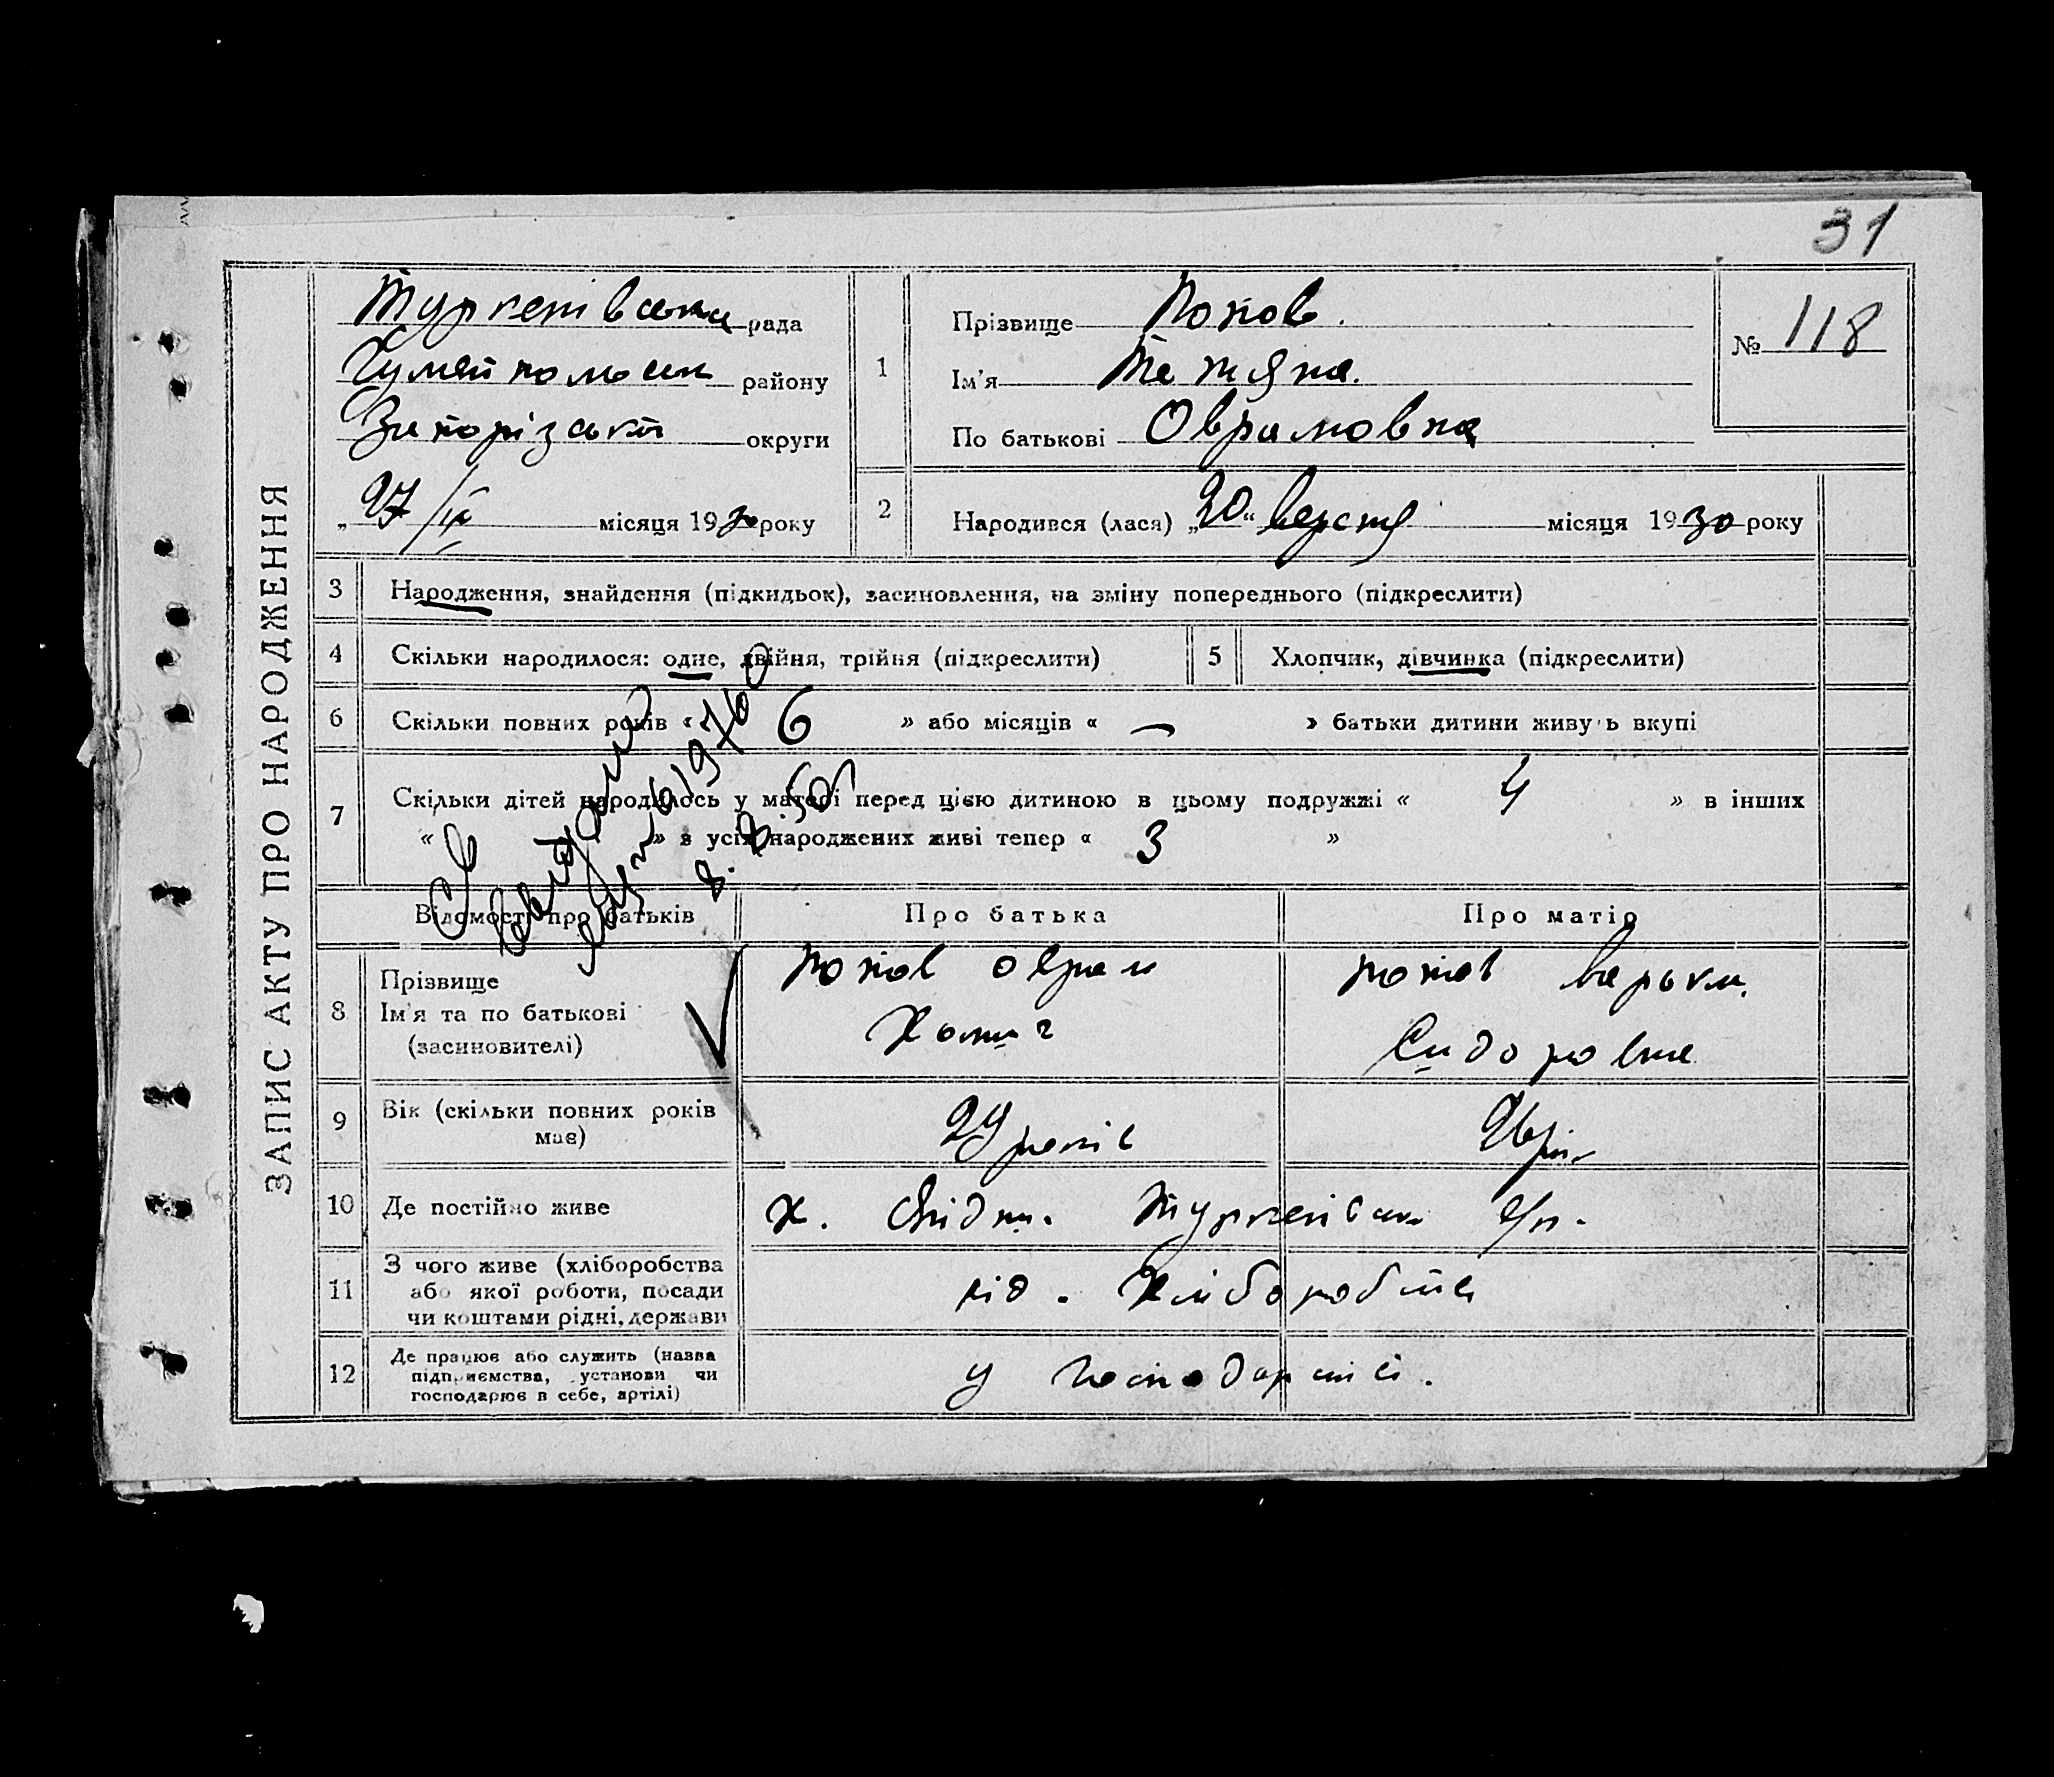 31
ЗАПИС АКТУ ПРО НАРОДЖЕННЯ
Туркенівська рада
Гуляйпольськ району
Запорізької округи
„ 27/IX місяця 1930 року
1
Прізвище Попов.
Ім'я Татяна.
По батькові Оврамовна
№ 118
2
Народився (лася) „20“ верстня місяця 1930 року
3 Народження, знайдення (підкидьок), засиновлення, на зміну попереднього (підкреслити)
4 Скільки народилося: одне, двійня, трійня (підкреслити)
5 Хлопчик, дівчинка (підкреслити)
6 Скільки повних років « 6 » або місяців « — » батьки дитини живуть вкупі
7 Скільки дітей народилось у матері перед цією дитиною в цьому подружжі « 4 » в інших
« » з усіх народжених живі тепер « 3 »
619760
8.
Відомості про батьків Про батька Про матір
8 Прізвище
Ім'я та по батькові
(засиновителі)
Попов Оврам
Хомич
Попов
Сидоровна
9 Вік (скільки повних років
має)
29 років
26 рік
10 Де постійно живе
х. Туркенівськ с/р.
11 З чого живе (хліборобства
або якої роботи, посади
чи коштами рідні, держави
від. Хліборобства
12 Де працює або служить (назва
підприємства, установи чи
господарює в себе, артілі)
у господарстві.